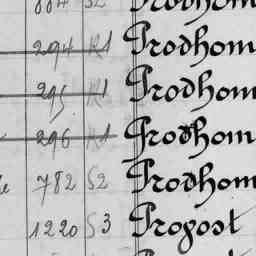 884 S2 Prodhom
294 R1 Prodhom
295 R1 Prodhom
296 R1 Prodhom
782 S2 Prodhom
1220 S3 Propost